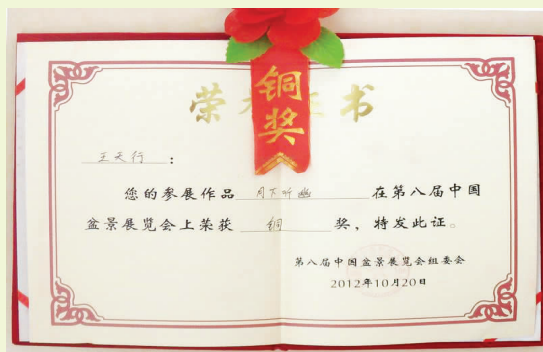 铜奖
荣 证书
王天行：
您的参展作品 月下听幽 在第八届中国
盆景展览会上荣获 铜 奖，特发此证。
第八届中国盆景展览会组委会
2012年10月20日